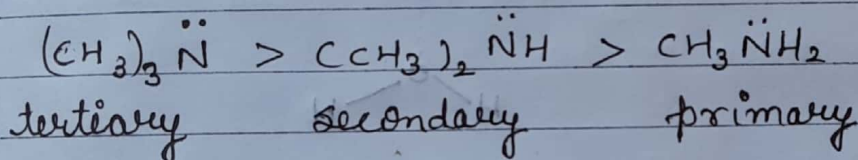 (CH₃)₃ N̈ > (CH₃)₂ N̈H > CH₃N̈H₂
tertiary secondary primary